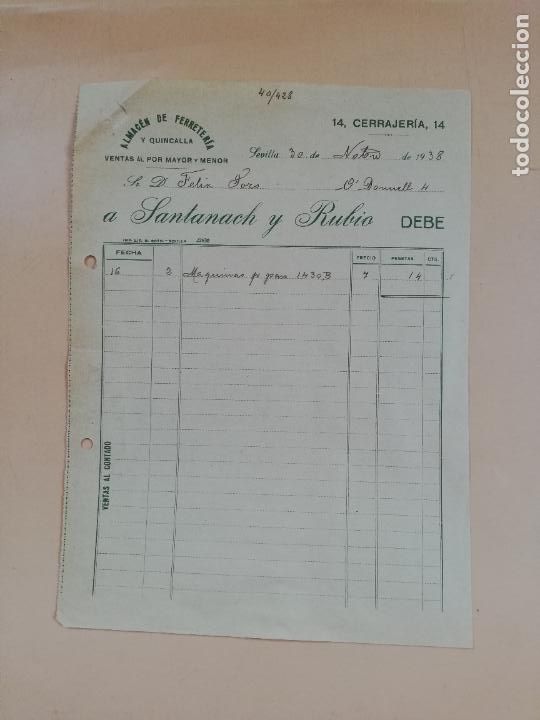 40/428
ALMACÉN DE FERRETERÍA
Y QUINCALLA
VENTAS AL POR MAYOR Y MENOR
14, CERRAJERÍA, 14
Sevilla 30 de Nobre de 1938
Sr. D. Felix Pozo O'Donnell 4
a Santanach y Rubio DEBE
FECHA PRECIO PESETAS CTS.
16 2 Maquinas pr 1430B 7 14
VENTAS AL CONTADO
todocoleccion